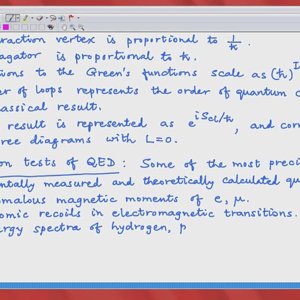 raction vertex is proportional to 1/ħ.
agator is proportional to ħ.
tions to the Green's functions scale as (ħ)^I
er of loops represents the order of quantum c
lassical result.
result is represented as e^{iS_cl/ħ}, and cor
ree diagrams with L=0.
on tests of QED : Some of the most preci
entally measured and theoretically calculated qu
omalous magnetic moments of e, μ.
omic recoils in electromagnetic transitions.
ergy spectra of hydrogen, p